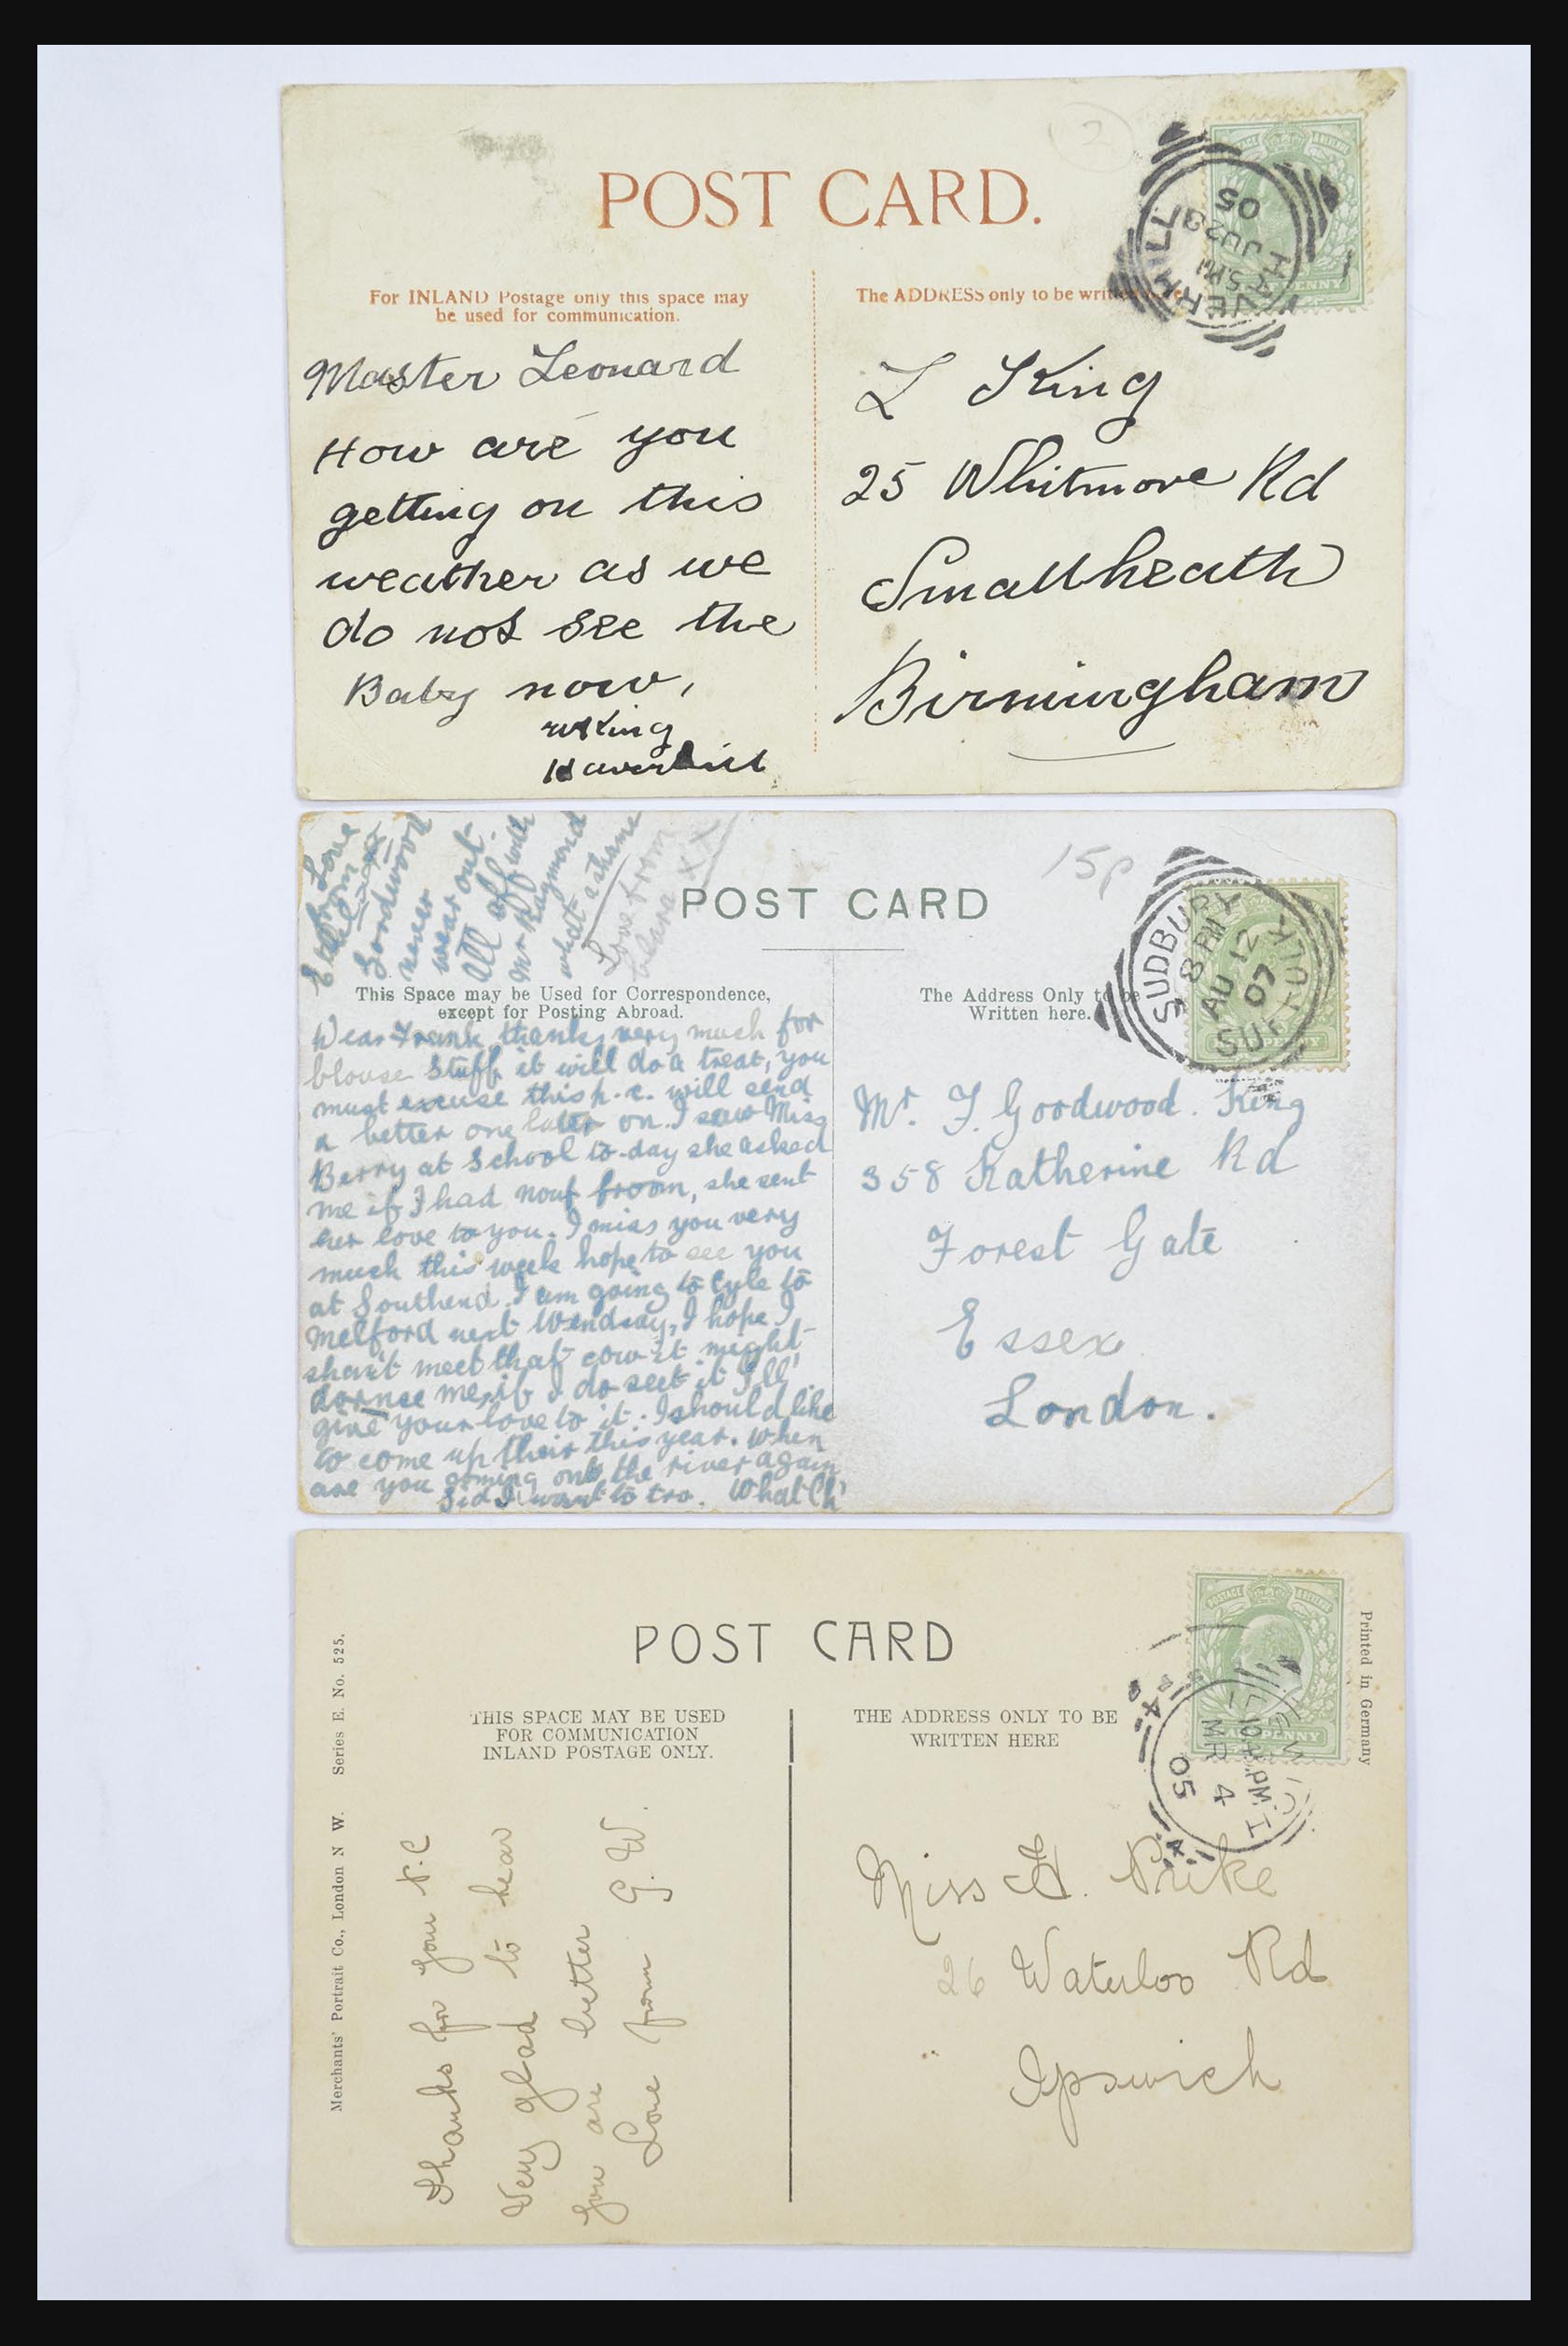 2
POST CARD.
For INLAND Postage only this space may
be used for communication.
The ADDRESS only to be written
HAVERHILL
5.PM
JU 23
05
Master Leonard
How are you
getting on this
weather as we
do not see the
Baby now,
King
Haverhill
L King
25 Whitmore Rd
Smallheath
Birmingham
15p
POST CARD
SUDBURY
8 PM
AU 12
07
SUFFOLK
This Space may be Used for Correspondence,
except for Posting Abroad.
The Address Only to be
Written here.
Love
from
Ethel
Gordwood
never
wear out.
All off with
Mr Raymond
what a shame
Love from
Clara XX
Dear Frank, thanks very much for
blouse stuff it will do a treat, you
must excuse this p.c. will send
a better one later on. I saw Miss
Berry at School to-day she asked
me if I had nouf froom, she sent
her love to you. I miss you very
much this week hope to see you
at Southend. I am going to Cyle to
Melford next Wendsay, I hope I
shan't meet that cow it might
me, if I do seet it I'll
give your love to it. I should like
to come up their this year. When
are you coming onto the river again
Sid I want to tro. What Oh!
Mr. F. Goodwood. King
358 Katherine Rd
Forest Gate
Essex
London.
POST CARD
THIS SPACE MAY BE USED
FOR COMMUNICATION
INLAND POSTAGE ONLY.
THE ADDRESS ONLY TO BE
WRITTEN HERE
Printed in Germany
Merchants' Portrait Co., London N W. Series E. No. 525.
MR 4
05
Thanks for your P.C
Very glad to hear
you are better
Love from G.W.
Miss H. Prike
26 Waterloo Rd
Ipswich